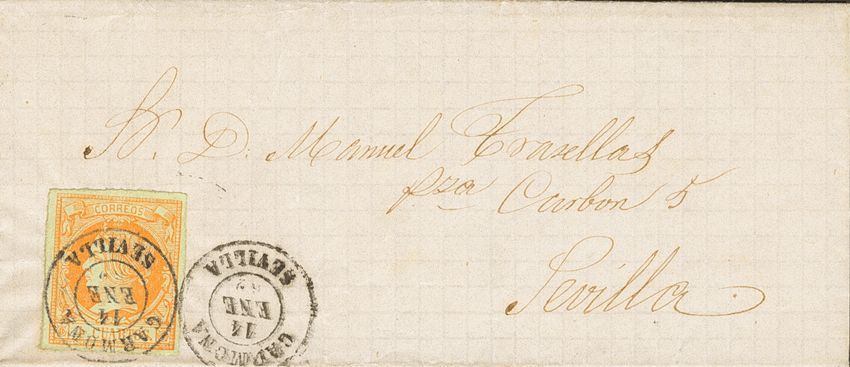 Sr. D. Manuel Trasellas
pza Carbon 5
Sevilla
CORREOS
CUARTOS
CARMONA
14
ENE
SEVILLA
CARMONA
14
ENE
SEVILLA